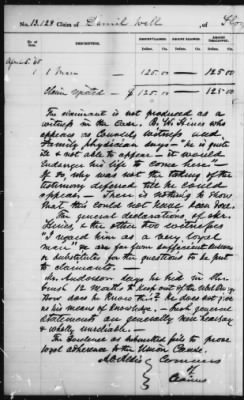 No. 13.129 Claim of Daniel Webb, of
DESCRIPTION.
AMOUNT CLAIMED.
AMOUNT ALLOWED.
AMOUNT DISALLOWED.
Dollars. Cts. Dollars. Cts. Dollars. Cts.
1 Mare 125 00 125.00
Claim rejected $ 125 00 125.00
The claimant is not produced as a
witness in the case. Dr. Hines who
appears as Counsel's witness and
Family physician says "he is quite
ill & not able to appear it would
endanger his life to come here"
If so, why was not the taking of the
testimony deferred till he could
appear. There is nothing to show
that this could not have been done.
The general declarations of Mr.
Hines & the other two witnesses
"I regard him as a very loyal
man" & are far from sufficient evidence
or substitute for the questions to be put
to claimants.
Mr. Anderson says he hid in the
brush 12 months to keep out of the Reb Army.
How does he know this? he does not give
us his means of knowledge. Such general
statements are generally mere hearsay
& wholly unreliable.
The evidence as submitted fails to prove
loyal adherence to the Union Cause.
A O Aldis
Commrs
of
Claims